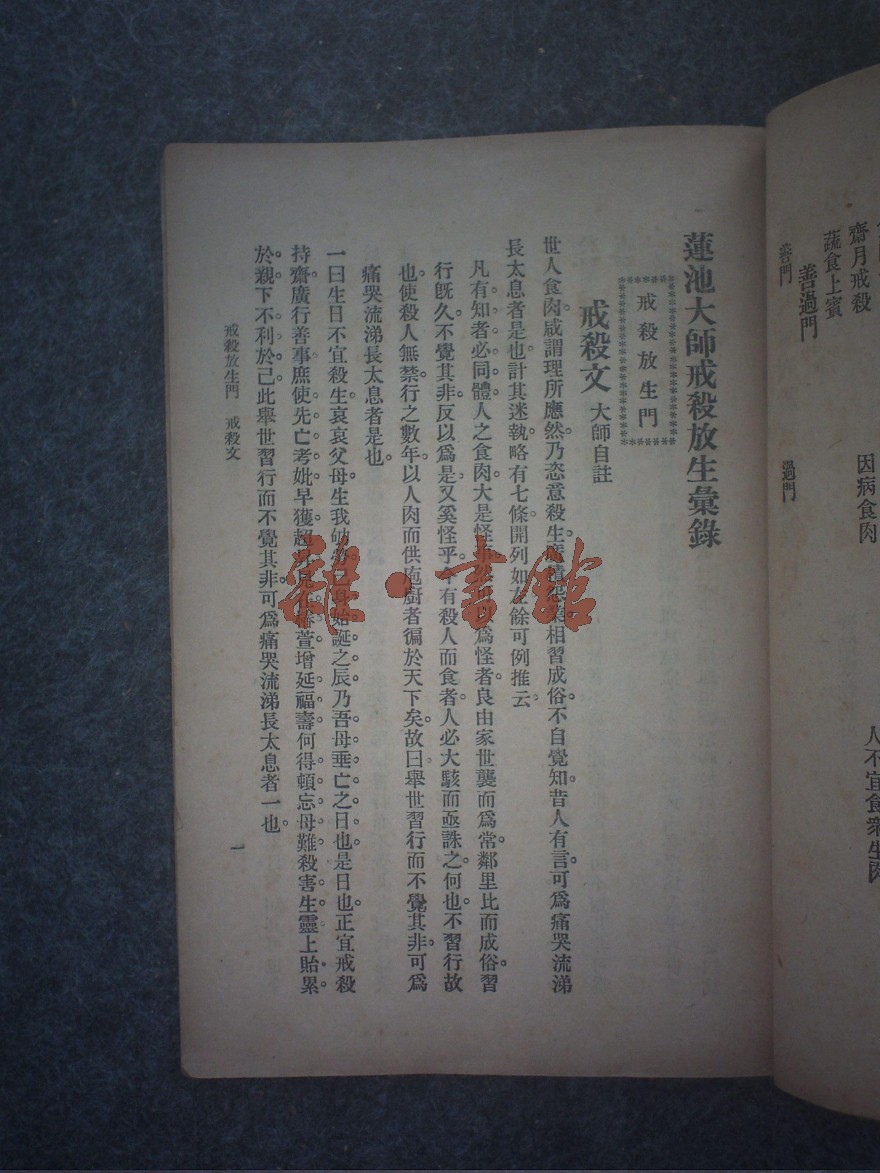 齋月戒殺
蔬食上賓
善過門
善門
過門
因病食肉
人不宜食衆生肉
蓮池大師戒殺放生彙錄
戒殺放生門
戒殺文 大師自註
世人食肉。咸謂理所應然。乃恣意殺生。廣積怨業。相習成俗。不自覺知。昔人有言。可爲痛哭流涕
長太息者是也。計其迷執。略有七條。開列如左。餘可例推云。
凡有知者必同體。人之食肉。大是怪事。然不以爲怪者。良由家世襲而爲常。鄰里比而成俗。習
行既久。不覺其非。反以爲是。又奚怪乎。今有殺人而食者。人必大駭而亟誅之。何也。不習行故
也。使殺人無禁。行之數年。以人肉而供庖廚者。徧於天下矣。故曰舉世習行而不覺其非。可爲
痛哭流涕長太息者是也。
一曰生日不宜殺生。哀哀父母。生我劬勞。己身始誕之辰。乃吾母垂亡之日也。是日也。正宜戒殺
持齋。廣行善事。庶使先亡考妣。早獲超昇。見在椿萱。增延福壽。何得頓忘母難。殺害生靈。上貽累
於親。下不利於己。此舉世習行而不覺其非。可爲痛哭流涕長太息者一也。
戒殺放生門 戒殺文
一
雜·書館